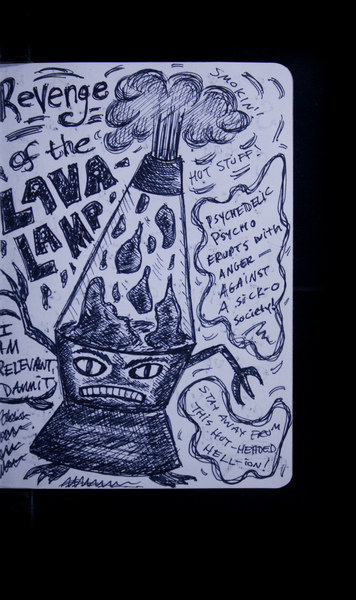 Revenge
of the
LAVA
LAMP
SMOKIN'!
HOT STUFF!
PSYCHEDELIC
PSYCHO
ERUPTS WITH
ANGER —
AGAINST
A SICK-O
SOCIETY!
I
AM
RELEVANT,
DAMMIT
STAY AWAY FROM
THIS HOT-HEADED
HELL-ION!